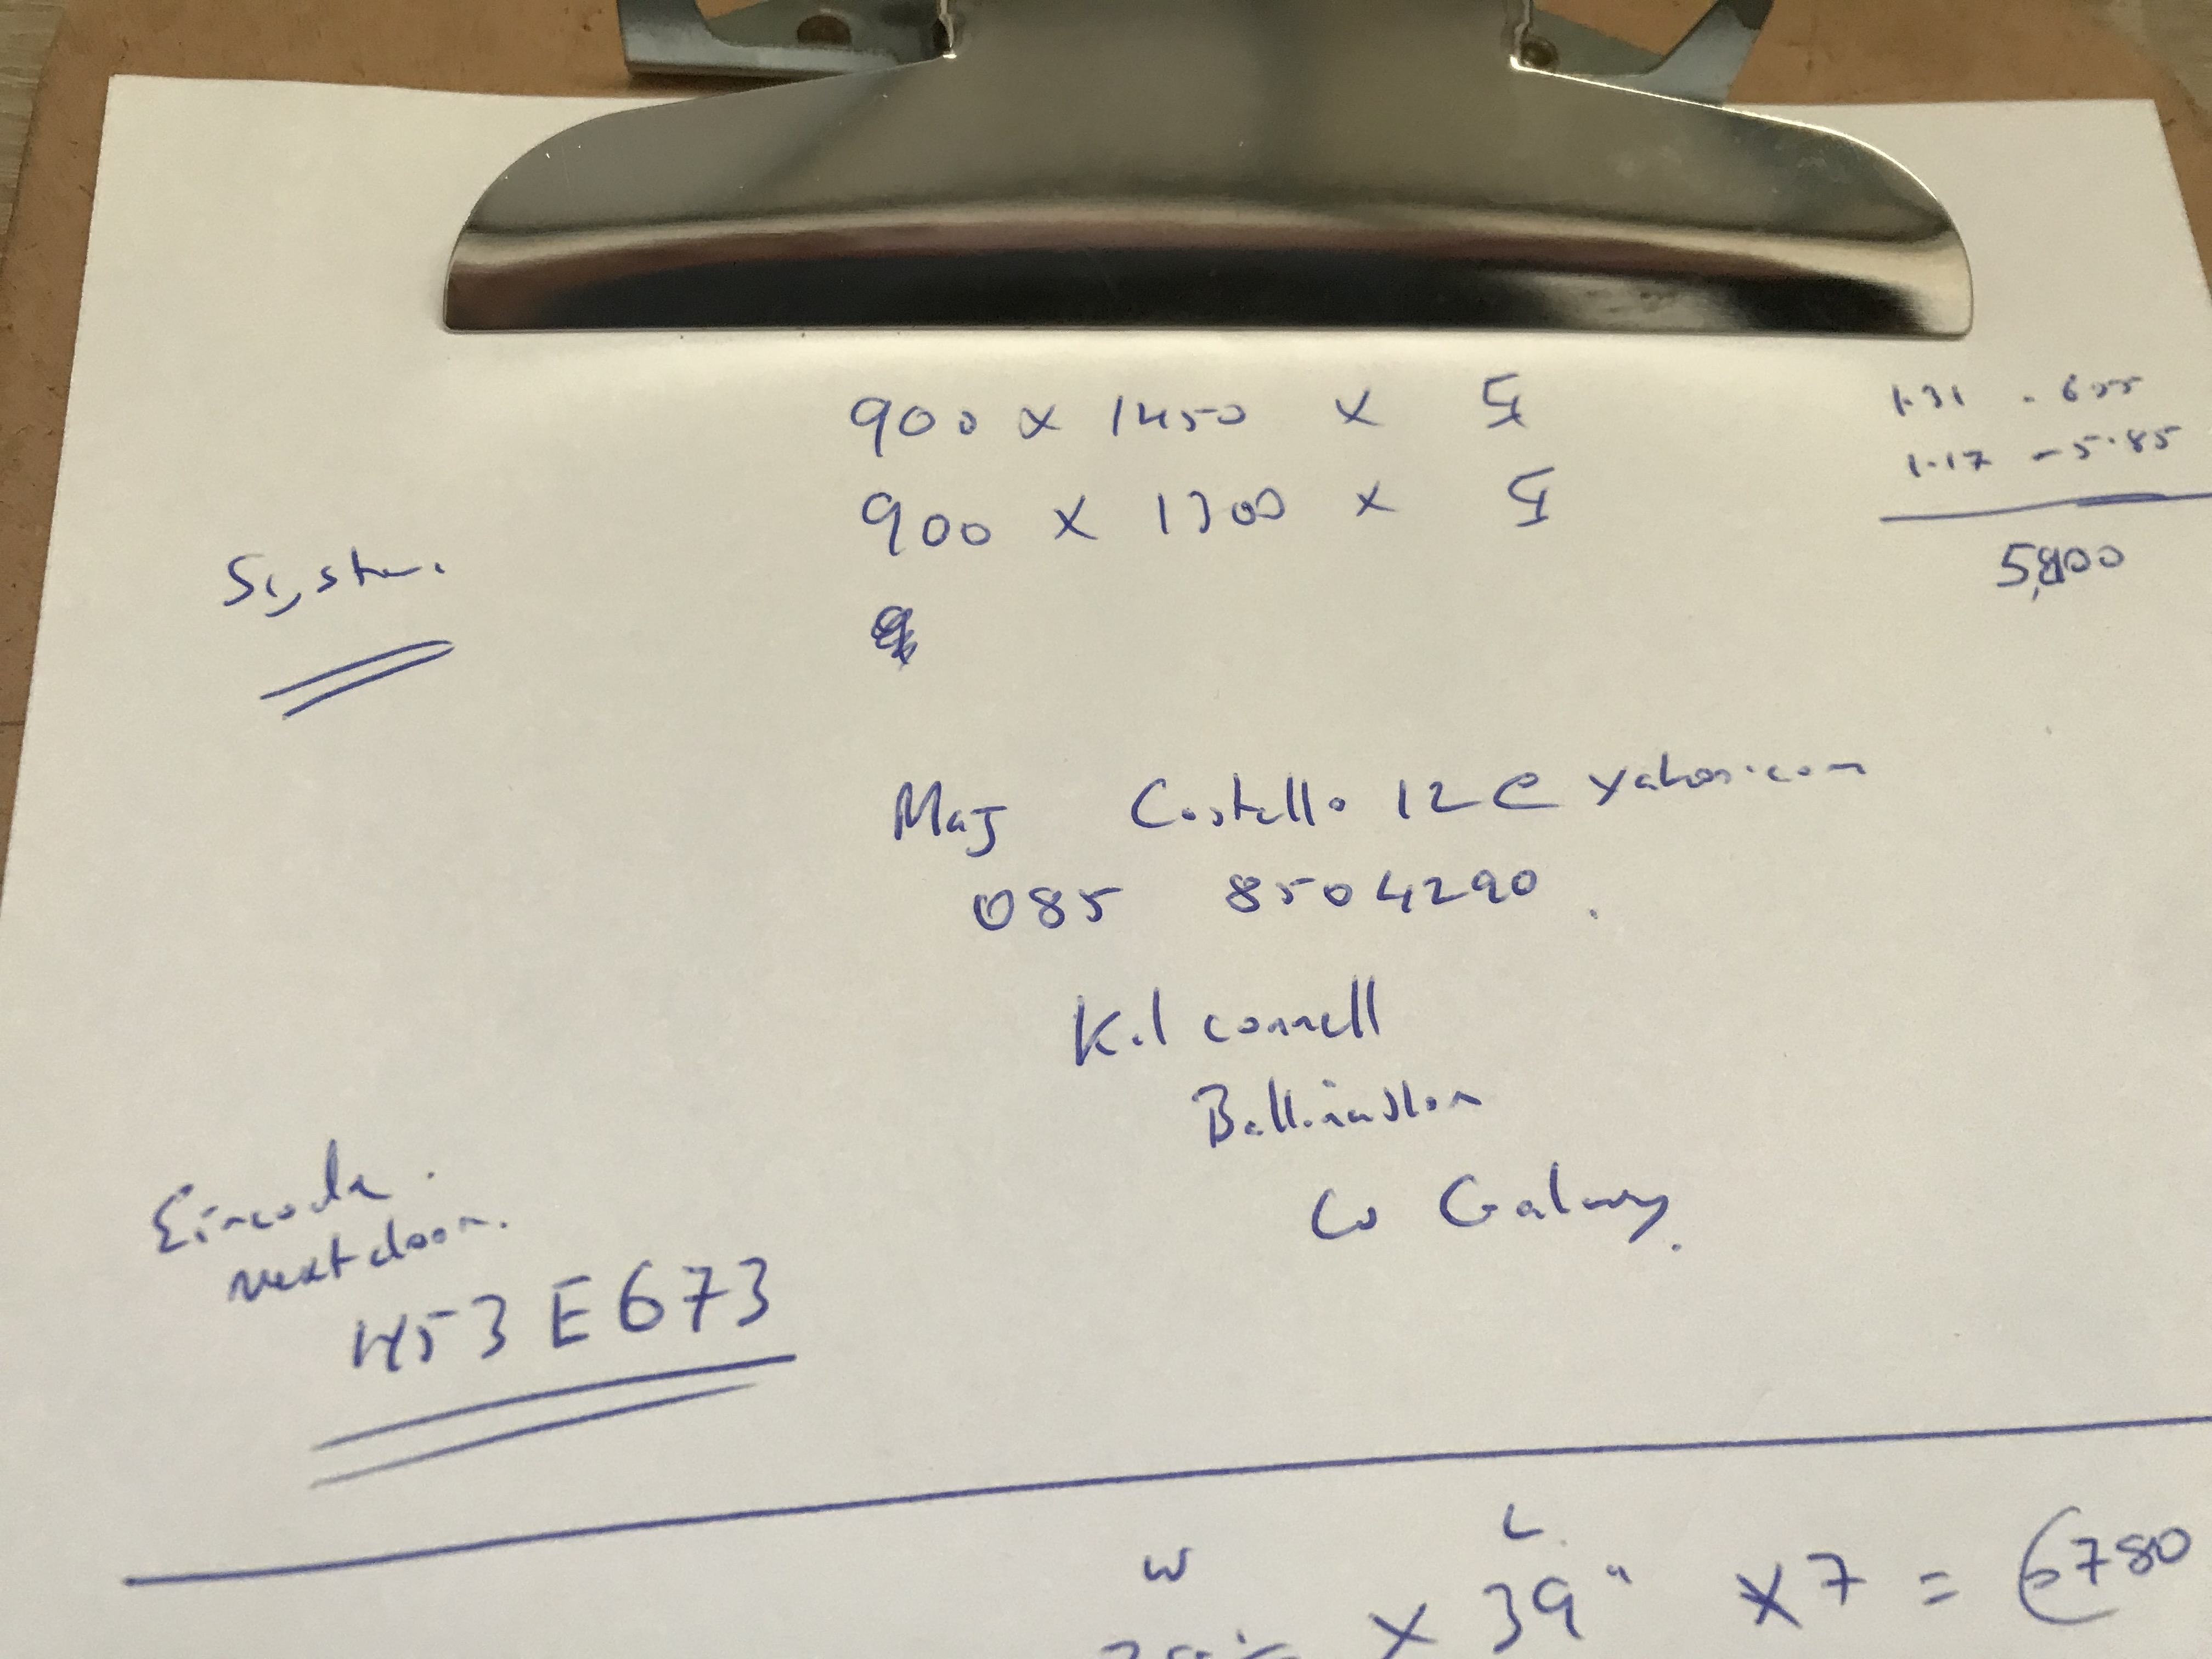 900 x 1450 x 5
1.31 - 6.55
900 x 1300 x 5
1.17 - 5.85
5,800
System.
Maj Costello 12 @ yahoo.com
085 8504290.
Kilconnell
Ballinasloe
Co Galway.
Eircode.
next door.
H53 E673
W L.
x 39" x 7 = €780